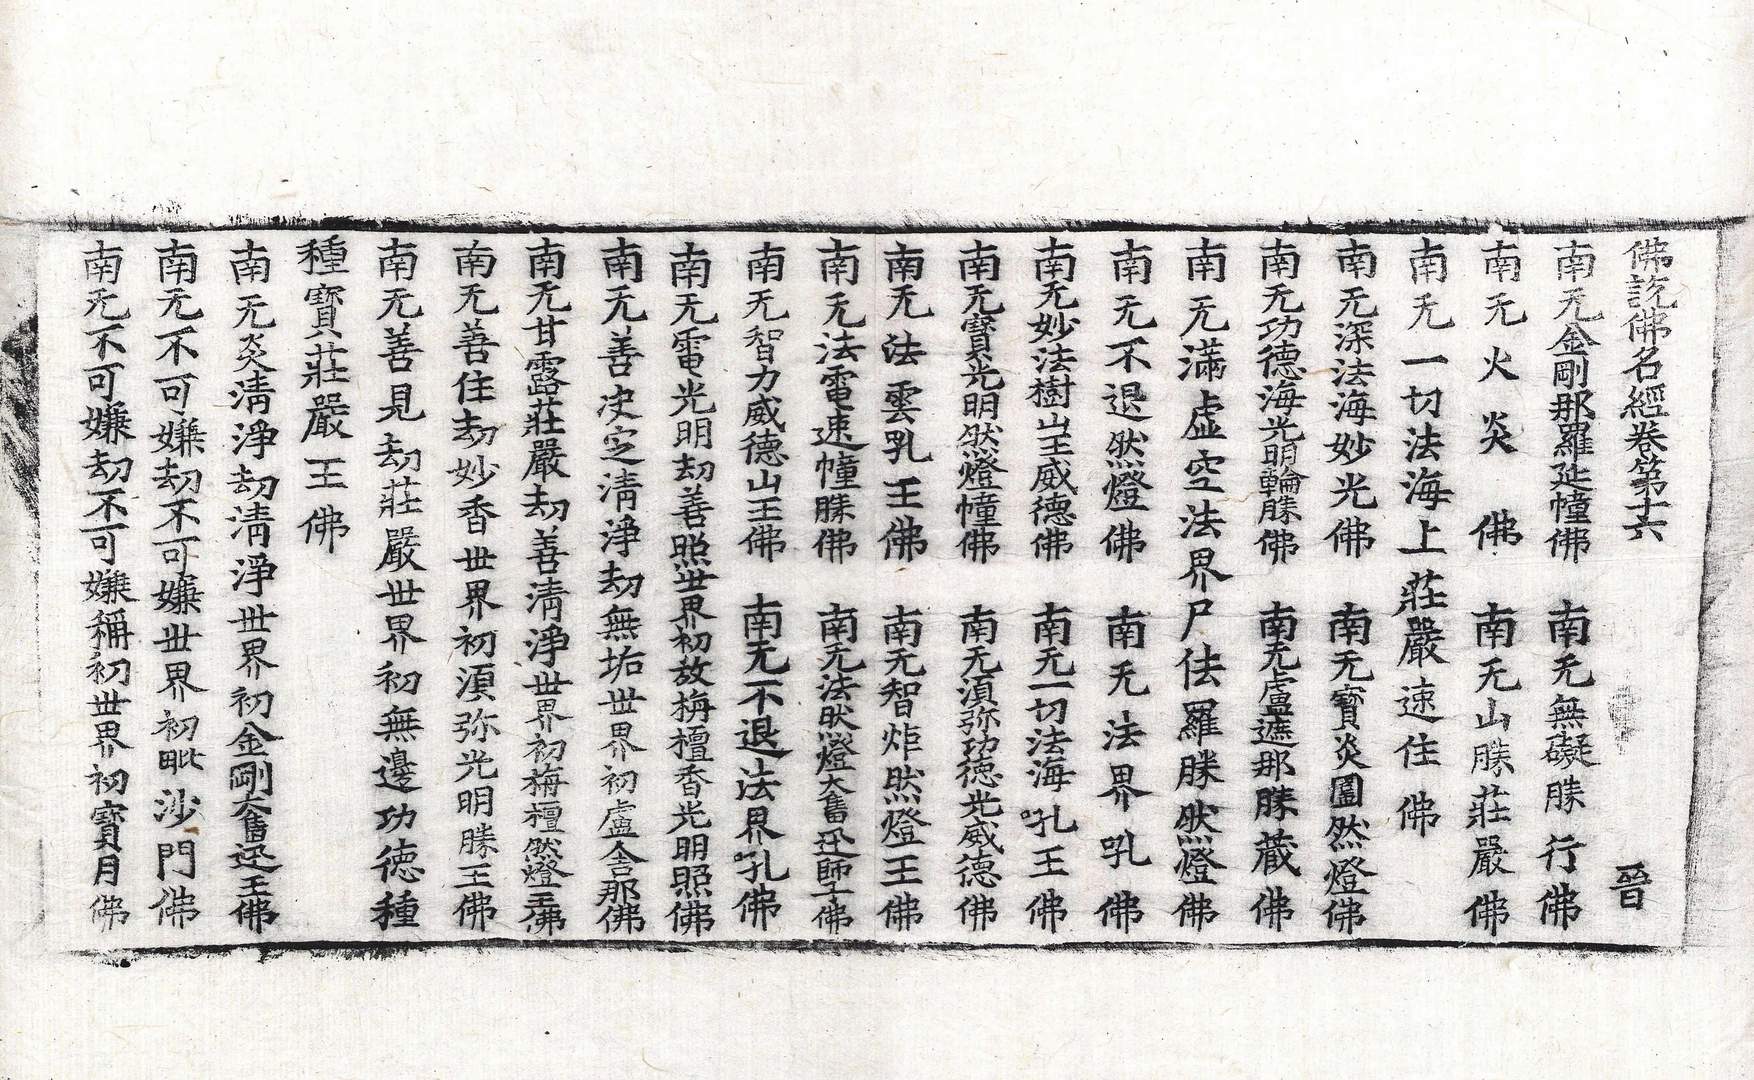 佛說佛名經卷第十六 晉
南无金剛那羅延幢佛 南无無礙勝行佛
南无火炎佛 南无山勝莊嚴佛
南无一切法海上莊嚴速住佛
南无深法海妙光佛 南无寶炎圍然燈佛
南无功德海光明輪勝佛 南无盧遮那勝藏佛
南无滿虛空法界尸佉羅勝然燈佛
南无不退然燈佛 南无法界吼佛
南无妙法樹山王威德佛 南无一切法海吼王佛
南无寶光明然燈幢佛 南无湏弥功德光威德佛
南无法雲乳王佛 南无智炸然燈王佛
南无法電速幢勝佛 南无法然燈奮迅師子佛
南无智力威德山王佛 南无不退法界吼佛
南无電光明劫善照世界初放栴檀香光明照佛
南无善决定淸淨劫無垢世界初盧舍那佛
南无甘露莊嚴劫善淸淨世界初栴檀然燈王佛
南无善住劫妙香世界初湏弥光明勝王佛
南无善見劫莊嚴世界初無邊功德種
種寶莊嚴王佛
南无炎淸淨劫淸淨世界初金剛奮迅王佛
南无不可嫌劫不可嫌世界初毗沙門佛
南无不可嫌劫不可嫌稱初世界初寶月佛